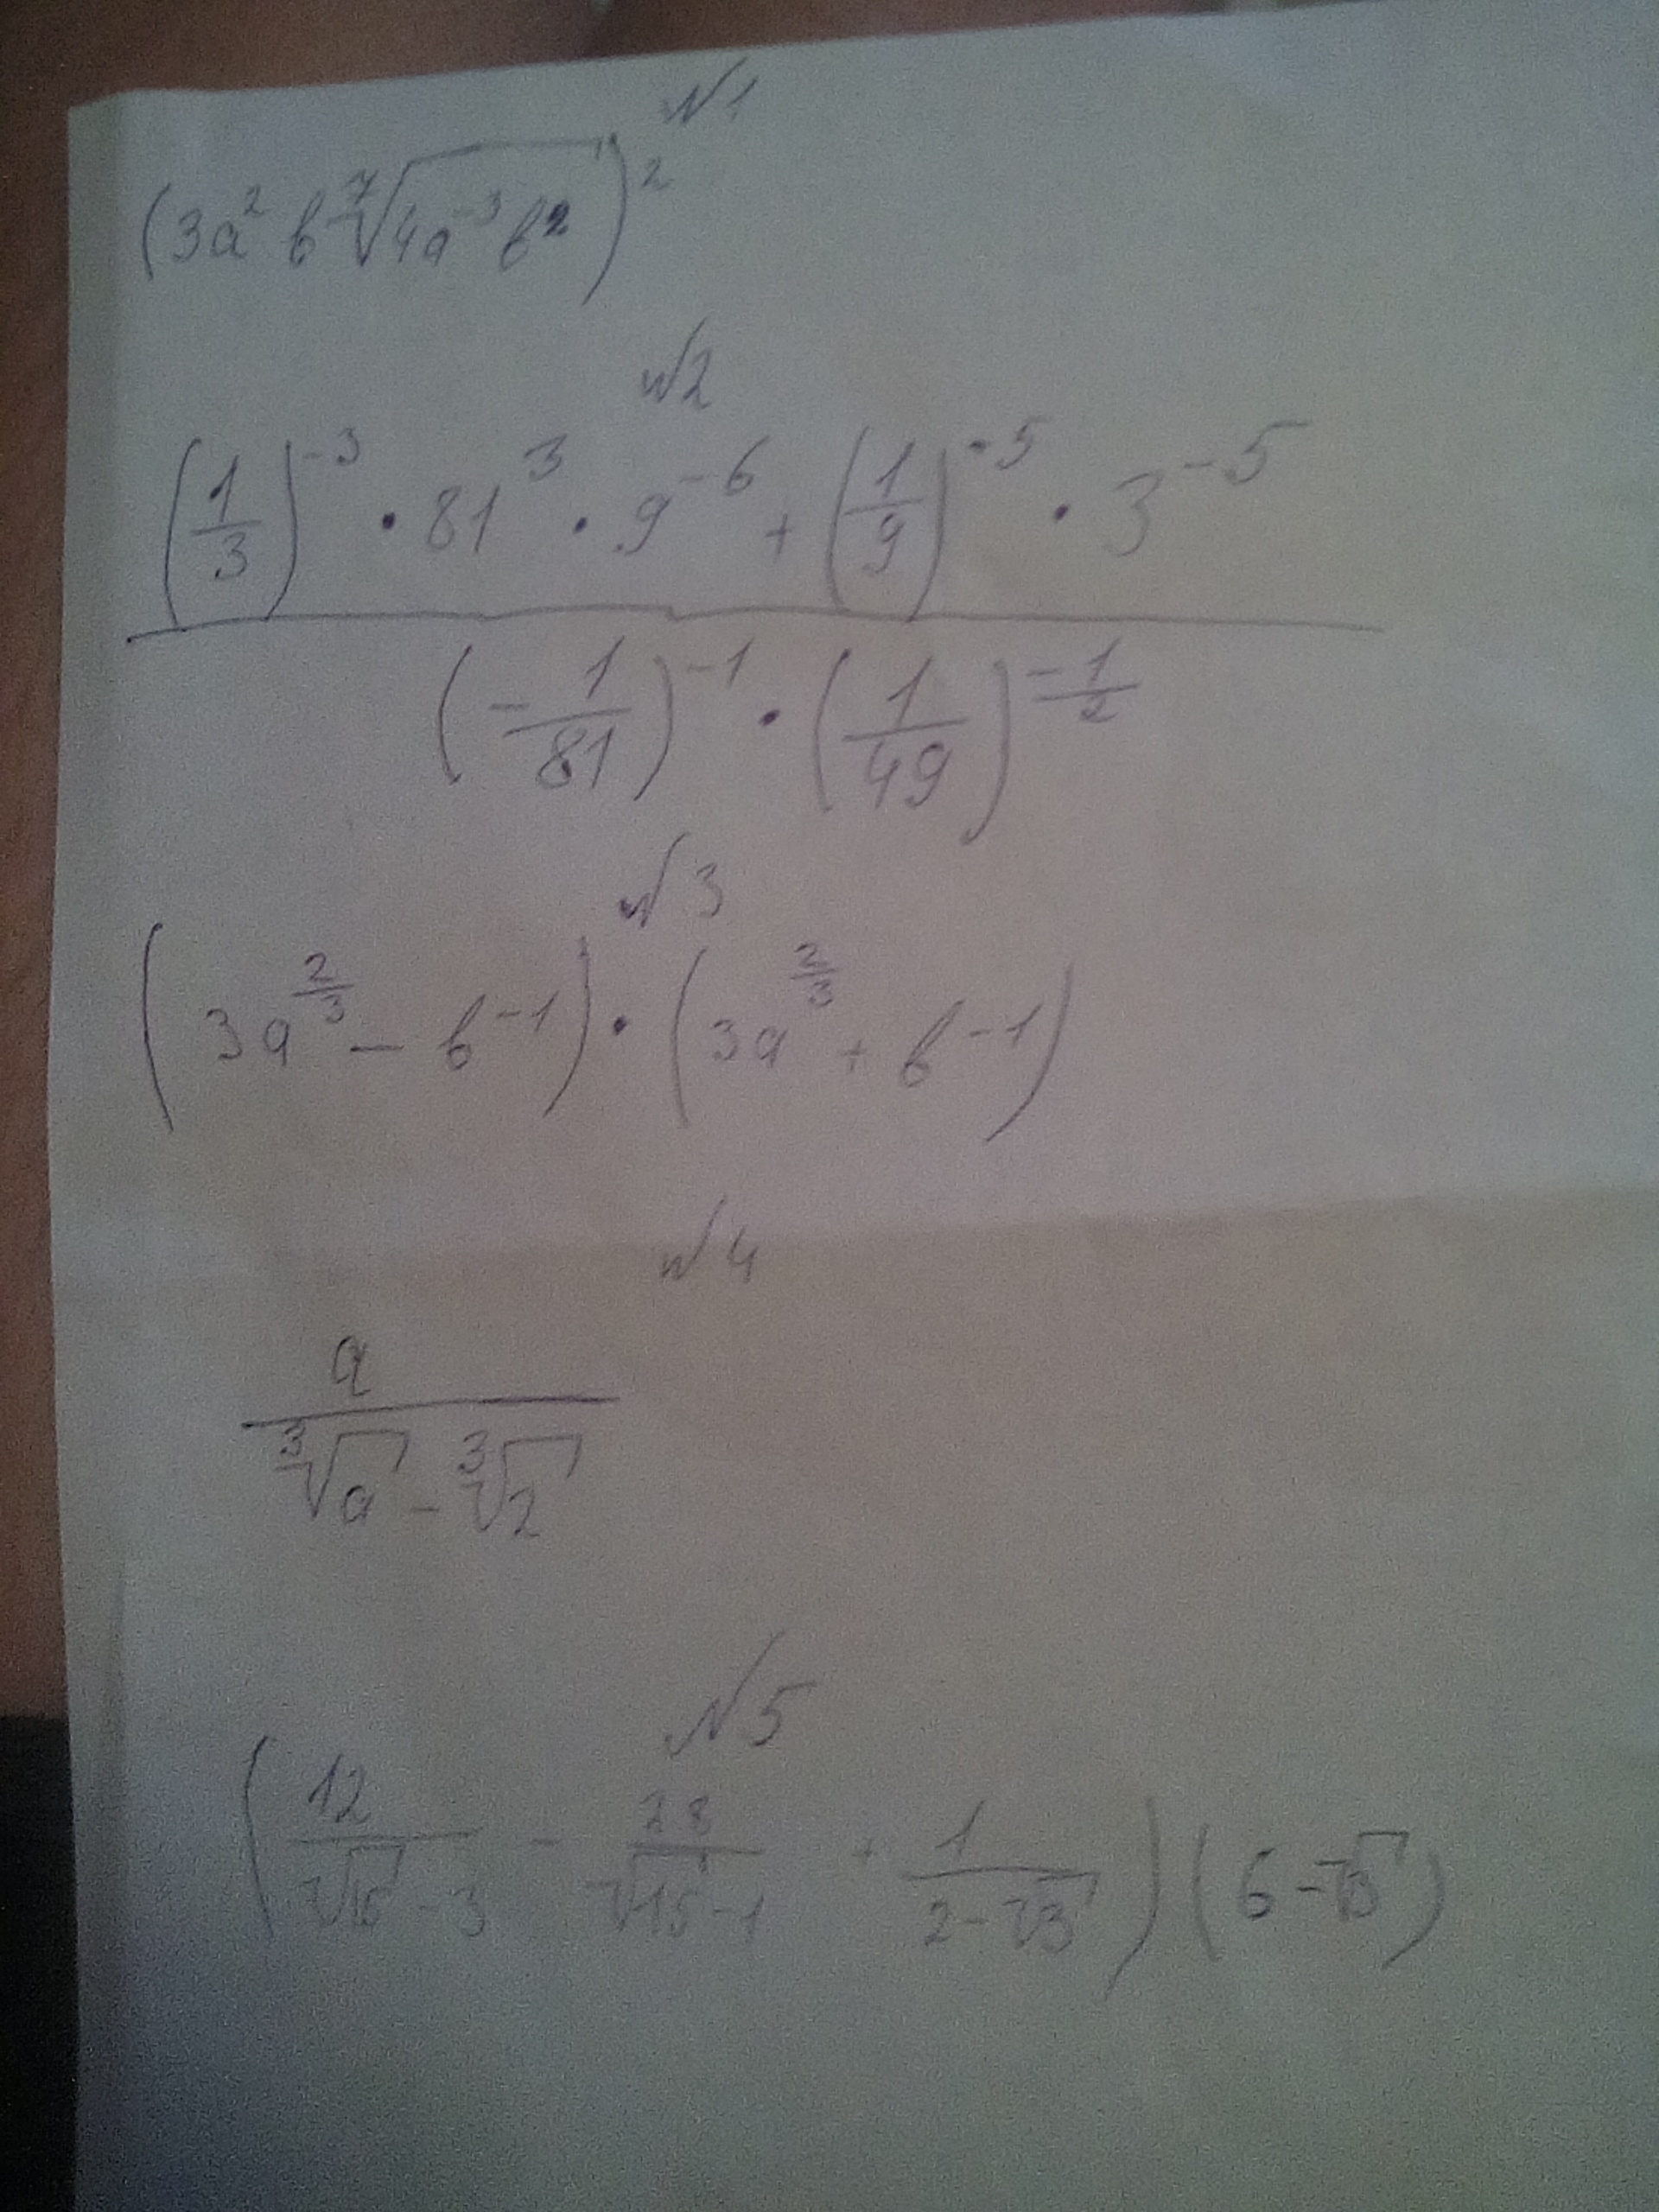 №1
(3a² b ⁷√(4a⁻³b²))²
№2
((1/3)⁻³ · 81³ · 9⁻⁶ + (1/9)⁻⁵ · 3⁻⁵) / ((-1/81)⁻¹ · (1/49)^(-1/2))
№3
(3a^(2/3) - b⁻¹) · (3a^(2/3) + b⁻¹)
№4
a / (³√a - ³√2)
№5
(12/(√15 - 3) - 28/(√15 - 1) + 1/(2 - √3)) (6 - √3)